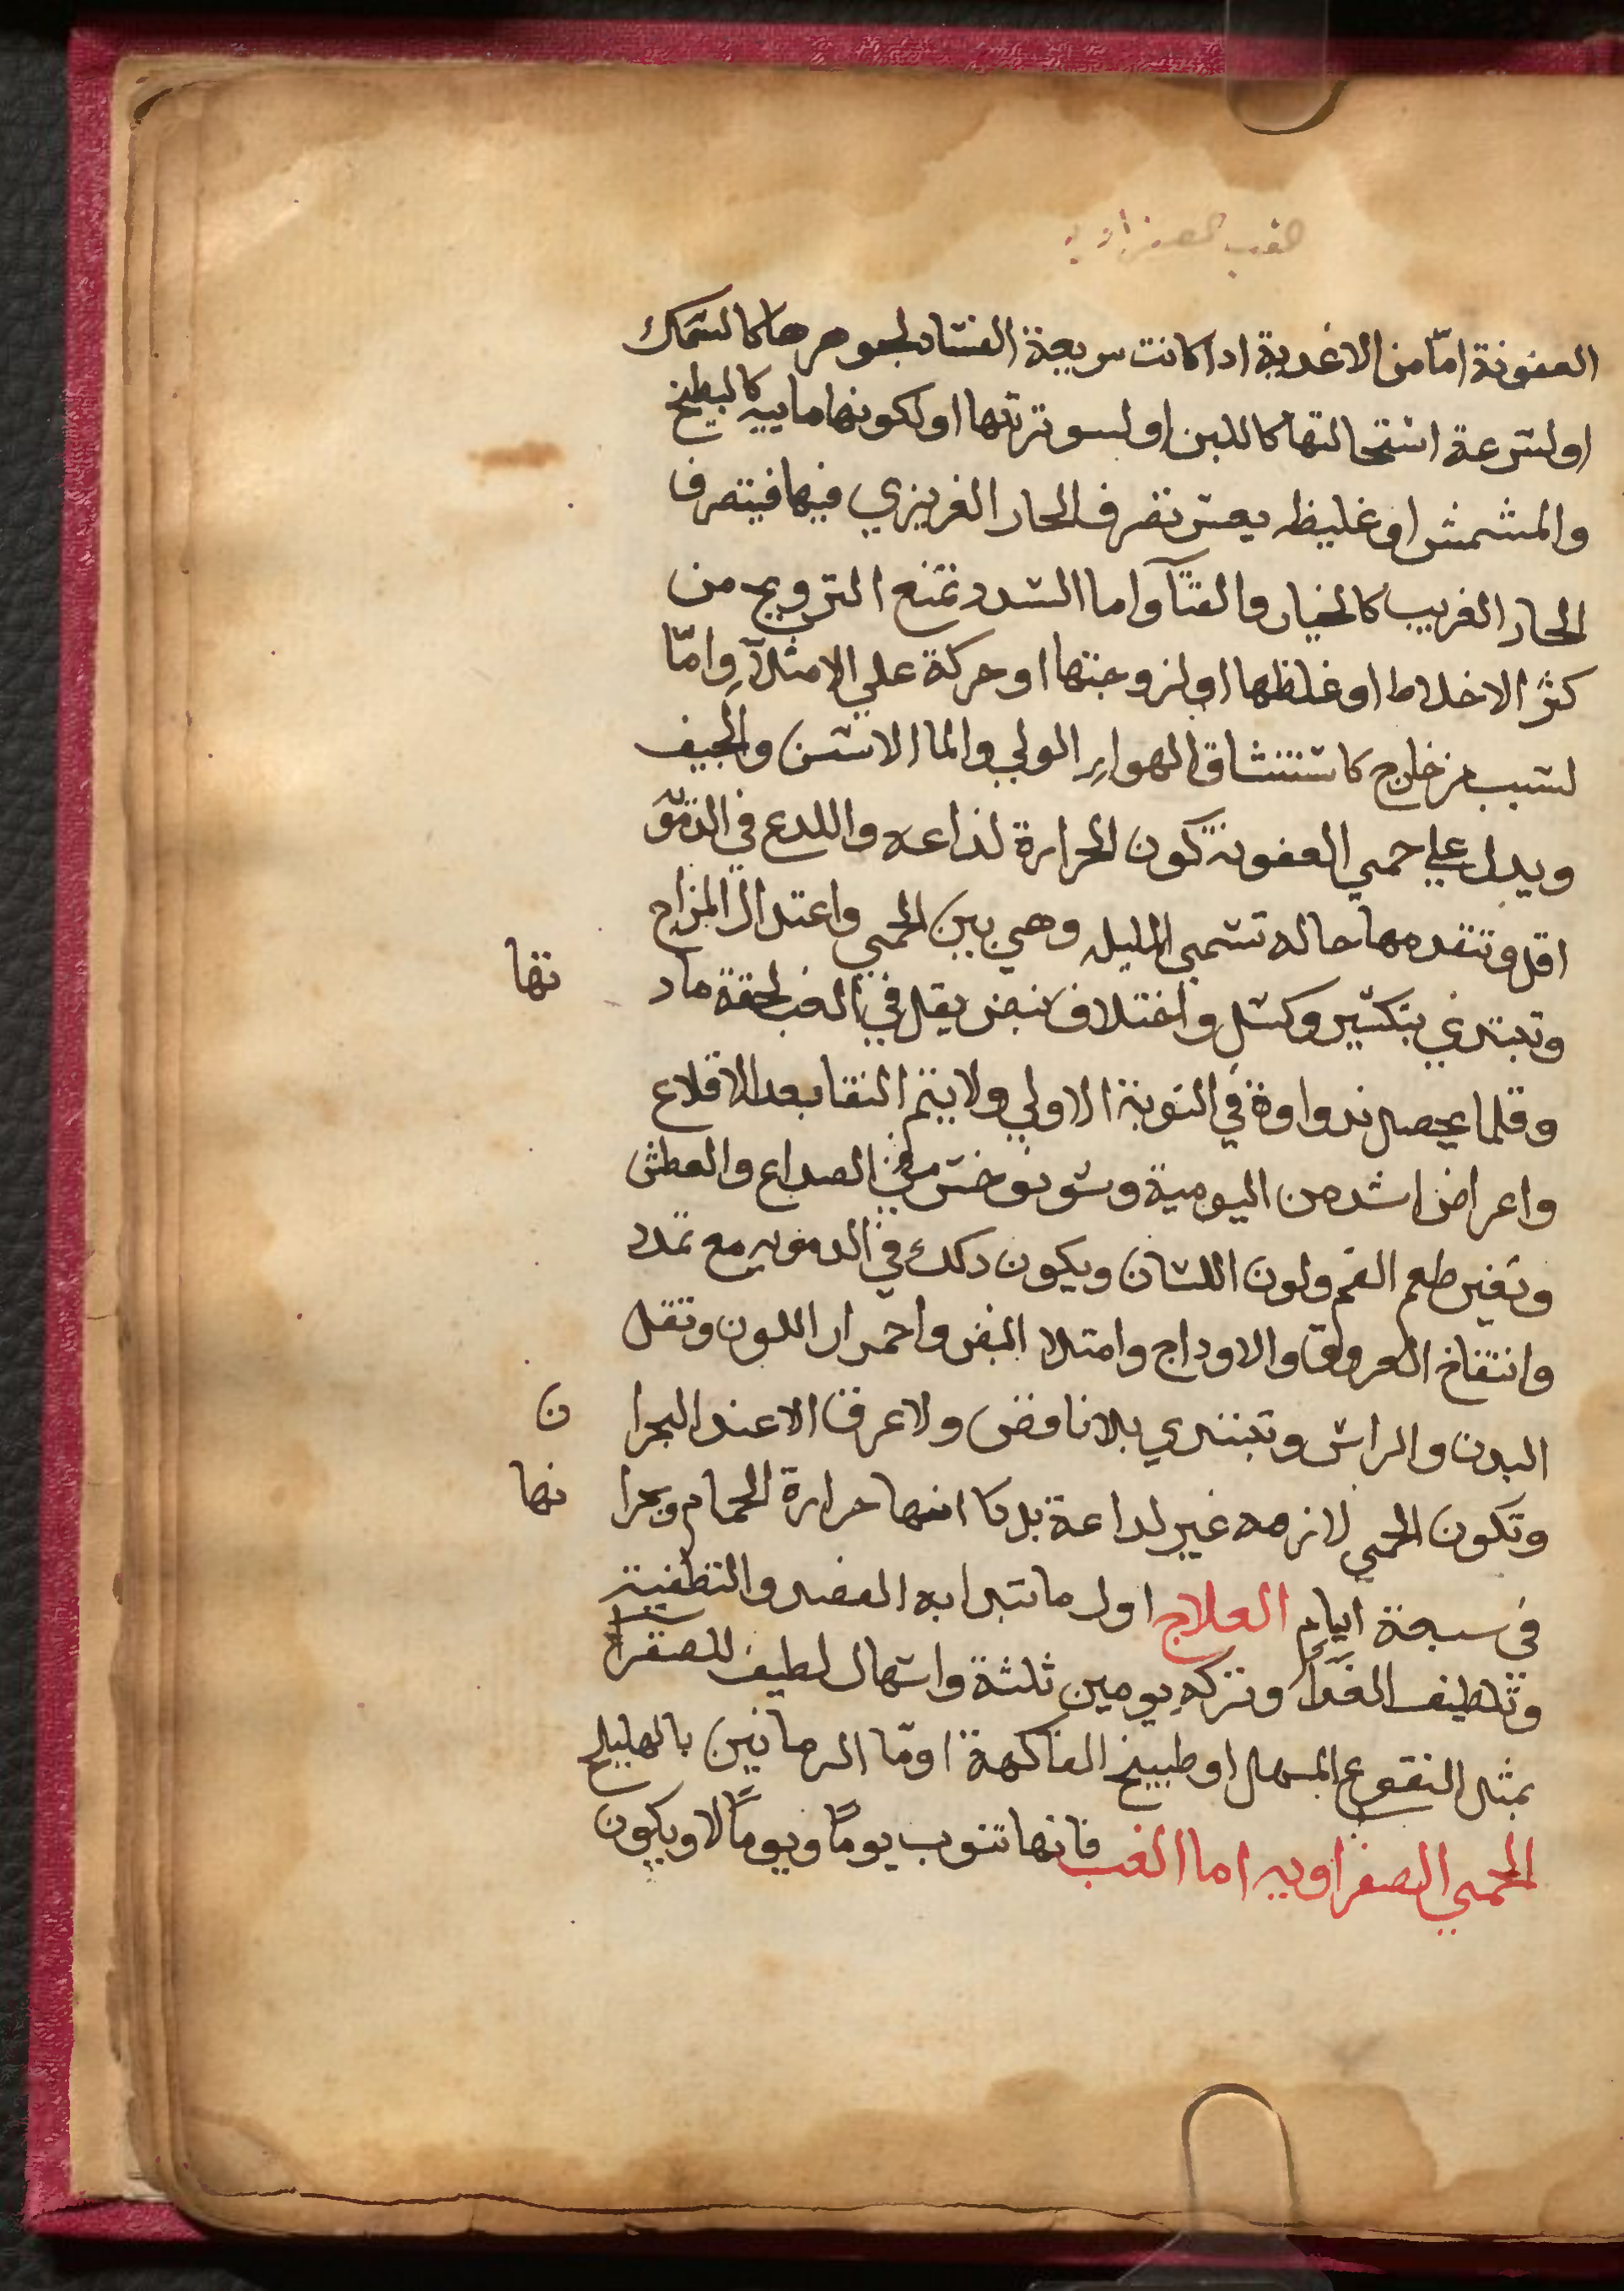 الغب الصفراويه
العفونة امّا من الاغدية ادا كانت سريعة الفساد لجوهرها كالسمك
اولسرعة استحالتها كاللبن اولسو ترتتها اولكونها ماييه كالبطيخ
والمشمش اوغليظه يعسر تصرف الحار الغريزي فيها فيتصرف
الحار الغريب كالخيار والقثآ واما السدد تمنع الترويح من
كثر الاخلاط اوغلظها اولزوجتها اوحركة علي الامتلآ وامّا
لسبب من خارج كاستنشاق الهواير الولي والما الاسن والجيف
ويدل علي حمي العفونة كون الحرارة لذاعه واللدع في الدمّ
اقل وتتقدمها حاله تسمي المليله وهي بين الحمي واعتدال المزاج
وتبتدي بتكسير وكسل واختلاف نبض يقل في الغب لخفة ماد تها
وقلما يحصل نداوة في النوبة الاولي ولا يتم النقا بعد الاقلاع
واعراض اشد من اليومية في الصداع والعطش
وتغير طعم الفم ولون اللسان ويكون دلك في الدمويه مع تمدد
وانتفاخ العروق والاوداج وامتلا النبض واحمرار اللون وثقل
البدن والراس وتبتدي بلا نافض ولا عرق الا عند البحرا ن
وتكون الحمي لازمه غير لداعة بل كا انها حرارة الحمام وبحرا نها
في سبعة ايام العلاج اول ما تبدا به الفصد والتطفية
وتلطيف الغدآ وتركه يومين ثلثة واسهال لطيف للصفرا
بمثل النقوع المسهل اوطبيخ الفاكهة اومّا الرمانين بالهليلج
الحمي الصفراويه اما الغب فانها تنوب يومًا ويومًا لا ويكون